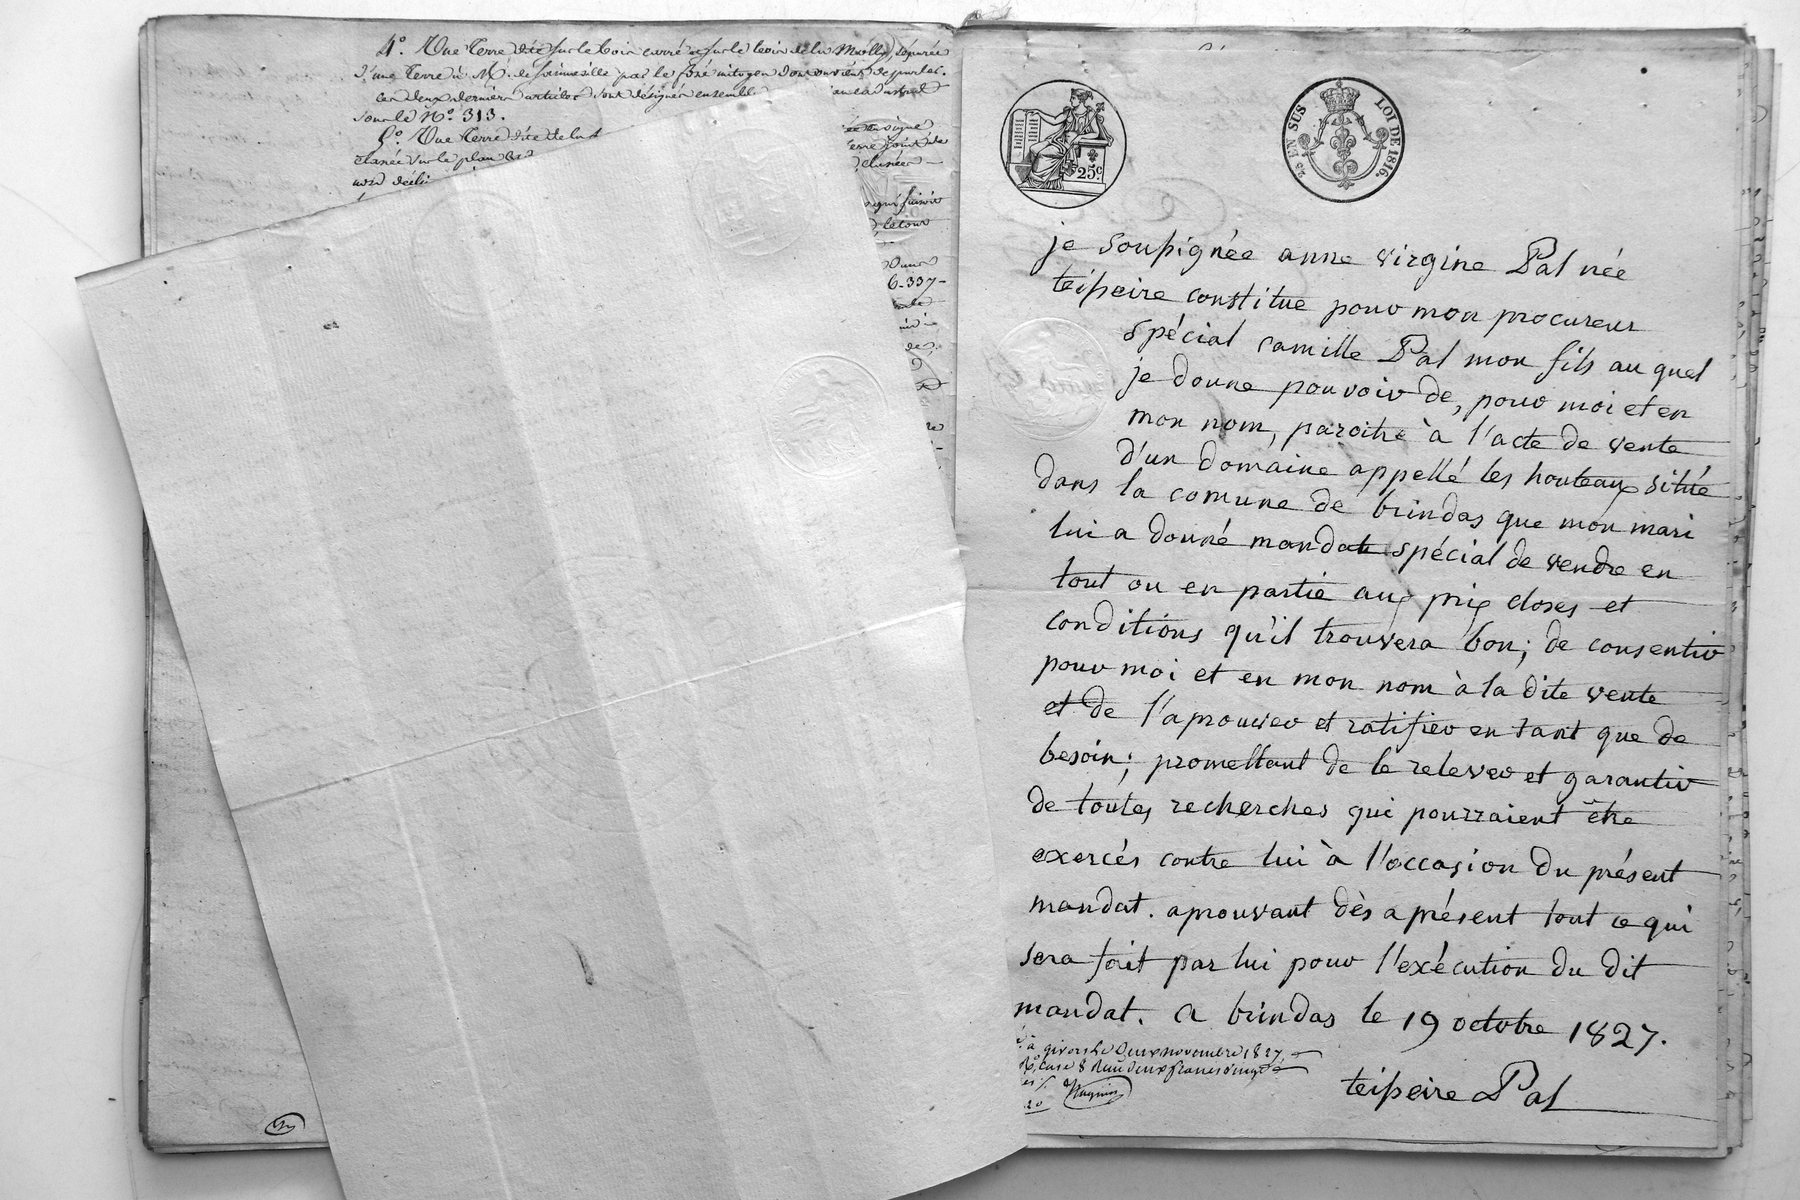 4º. Une Terre dite sur le Coin carré et sur le Coin de la Mully, séparée
d'une Terre à Mr. de par le fossé mitoyen dont on vient de parler.
Ces deux derniers articles sont désignés ensemble au cadastre
sous le Nº. 313.
5º. Une Terre dite de la
classée sur le plan
nord
6-337-
25 EN SUS LOI DE 1816.
25c.
je soussignée anne virgine Pal née
teisseire constitue pour mon procureur
spécial camille Pal mon fils au quel
je donne pouvoir de, pour moi et en
mon nom, paroitre à l'acte de vente
d'un domaine appellé les houteaux situé
dans la comune de brindas que mon mari
lui a donné mandat spécial de vendre en
tout ou en partie aux prix closes et
conditions qu'il trouvera bon; de consentir
pour moi et en mon nom à la dite vente
et de l'aprouver et ratifier en tant que de
besoin; promettant de le relever et garantir
de toutes recherches qui pourraient être
exercés contre lui à l'occasion du présent
mandat. aprouvant dès a présent tout ce qui
sera fait par lui pour l'exécution du dit
mandat. a brindas le 19 octobre 1827.
à givors le deux novembre 1827,
case 8 Reçu deux francs vingt
teisseire Pal